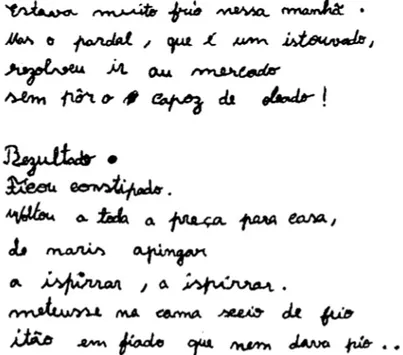 Estava muito frio nessa manhã.
Mas o pardal, que é um istouvado,
rezolveu ir au mercado
sem pôr o capoz de oleado!
Rezultado.
Ficou constipado.
Voltou a toda a preça para casa,
de naris apingar
a ispirrar, a ispirrar.
meteusse na cama xeeio de frio
itão em fiado que nem dava pio..